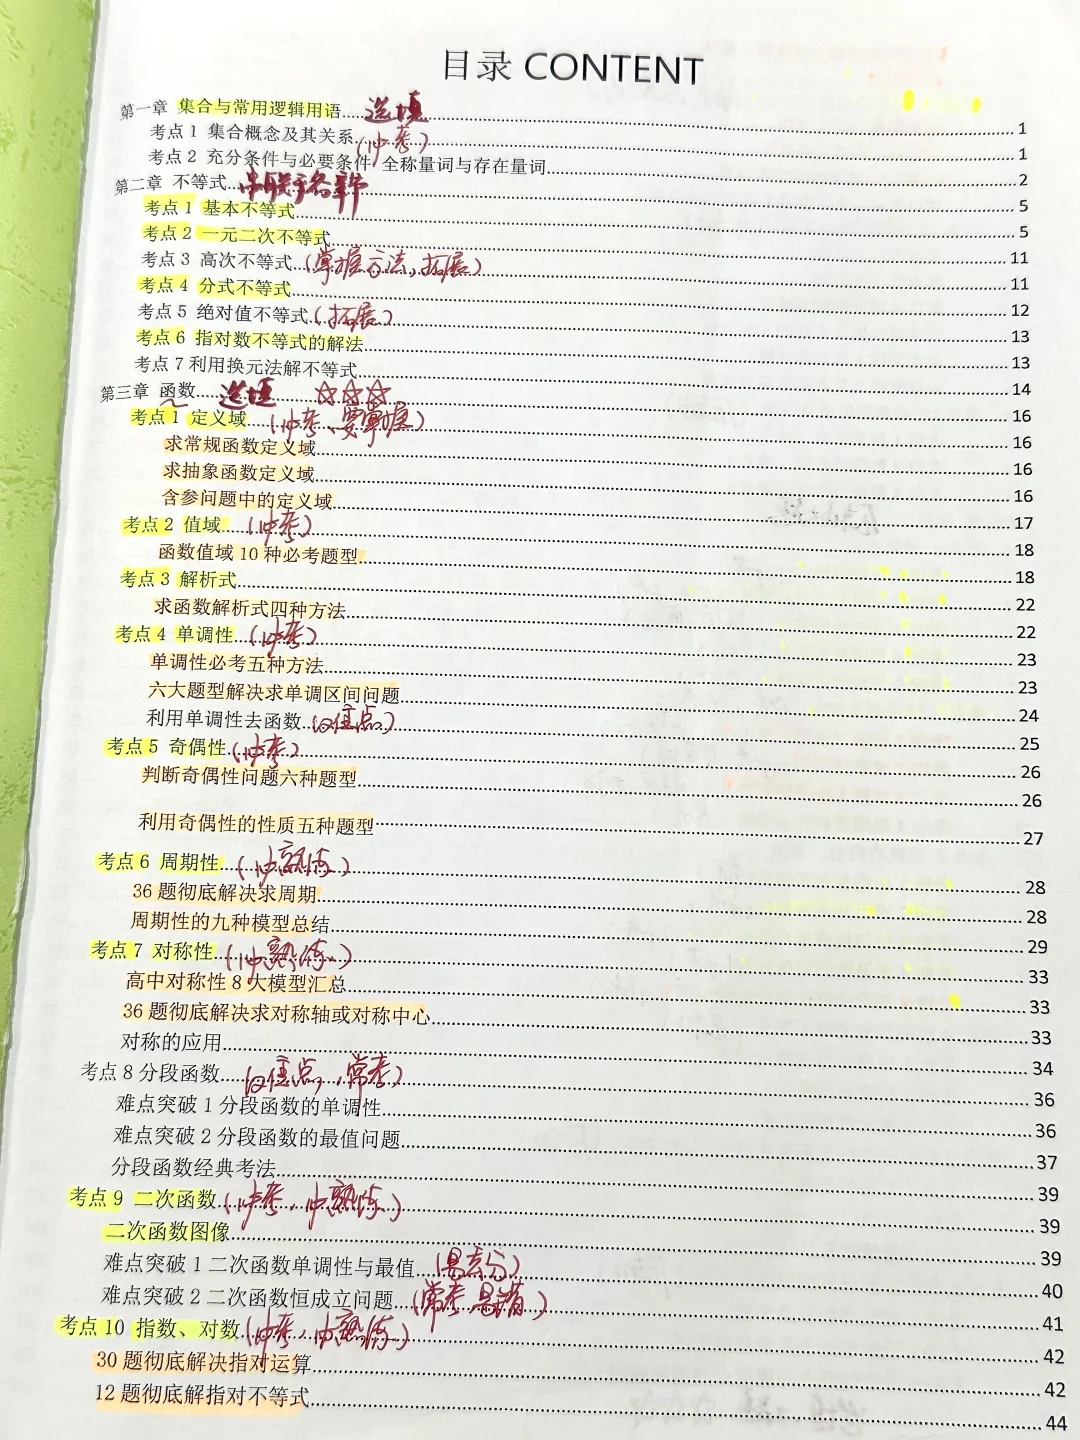 目录 CONTENT
第一章 集合与常用逻辑用语......选填......1
考点1 集合概念及其关系...(必考)......1
考点2 充分条件与必要条件 全称量词与存在量词......2
第二章 不等式...串联于各章节......5
考点1 基本不等式......5
考点2 一元二次不等式......11
考点3 高次不等式(掌握方法,拓展)......11
考点4 分式不等式......12
考点5 绝对值不等式(拓展)......13
考点6 指对数不等式的解法......13
考点7利用换元法解不等式......14
第三章 函数......选填 ☆☆☆......16
考点1 定义域...(必考、要掌握)......16
求常规函数定义域......16
求抽象函数定义域......16
含参问题中的定义域......17
考点2 值域...(必考)......18
函数值域10种必考题型......18
考点3 解析式......22
求函数解析式四种方法......22
考点4 单调性...(必考)......23
单调性必考五种方法......23
六大题型解决求单调区间问题......24
利用单调性去函数...(难点)......25
考点5 奇偶性(必考)......26
判断奇偶性问题六种题型......26
利用奇偶性的性质五种题型......27
考点6 周期性...(必熟练)......28
36题彻底解决求周期......28
周期性的九种模型总结......29
考点7 对称性...(必熟练)......33
高中对称性8大模型汇总......33
36题彻底解决求对称轴或对称中心......33
对称的应用......34
考点8分段函数...(难点,常考)......36
难点突破1分段函数的单调性......36
难点突破2分段函数的最值问题......37
分段函数经典考法......39
考点9 二次函数(必考,必熟练)......39
二次函数图像......39
难点突破1二次函数单调性与最值...(易丢分)......40
难点突破2二次函数恒成立问题...(常考 易错)......41
考点10 指数、对数(必考,必熟练)......42
30题彻底解决指对运算......42
12题彻底解指对不等式......44